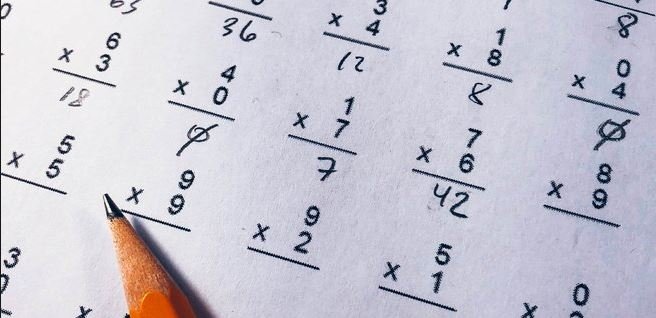 63
36
3
x 4
12
8
6
x 3
18
4
x 0
0
1
x 7
7
1
x 8
8
7
x 6
42
0
x 4
0
5
x 5
9
x 9
9
x 2
5
x 1
8
x 9
3
x
0
x